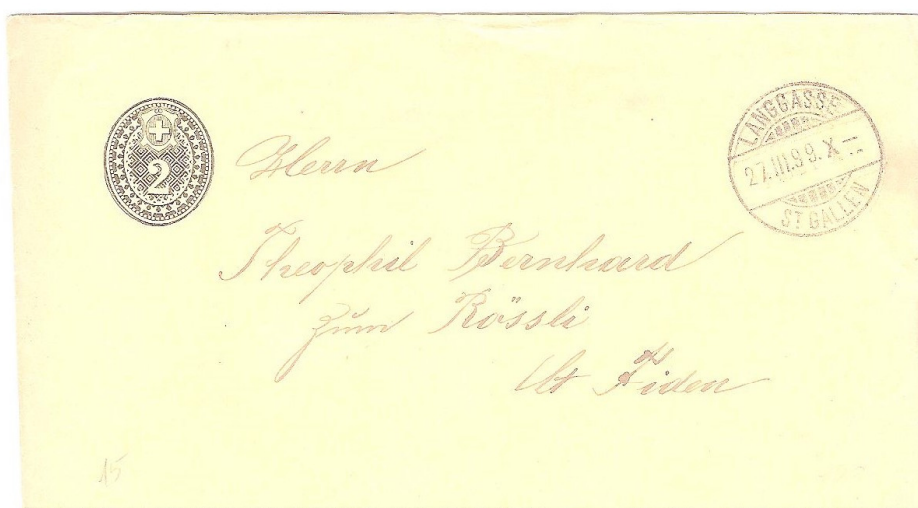 2
LANGGASSE
27.III.99.X
ST GALLEN
Herrn
Theophil Bernhard
zum Rössli
St Fiden
15